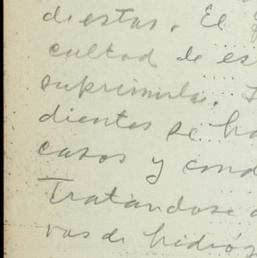 diestas. El
cultad de es
suprimirla.
dientes se ha
casos y cond
Tratándose
vas de hidróg